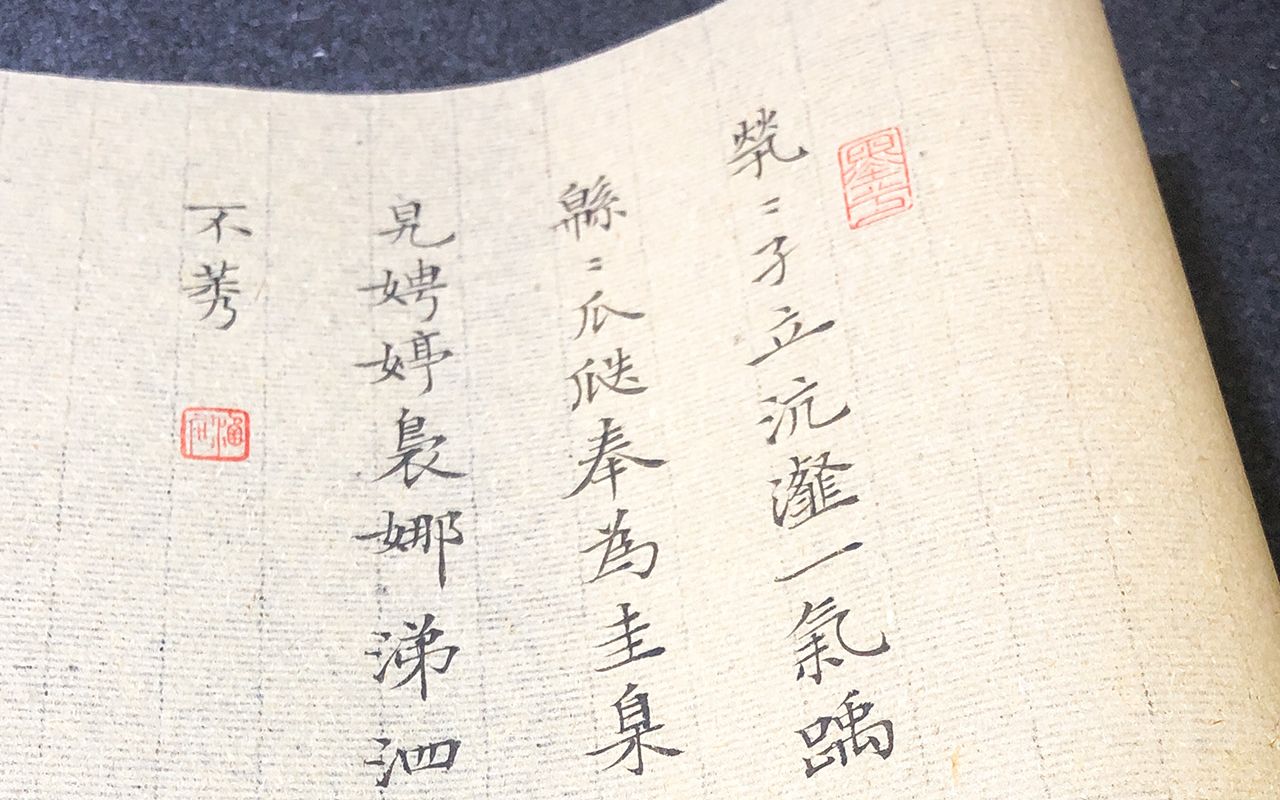 煢〻孑立沆瀣一氣踽
緜〻瓜瓞奉為圭臬
見娉婷裊娜涕泗
不莠